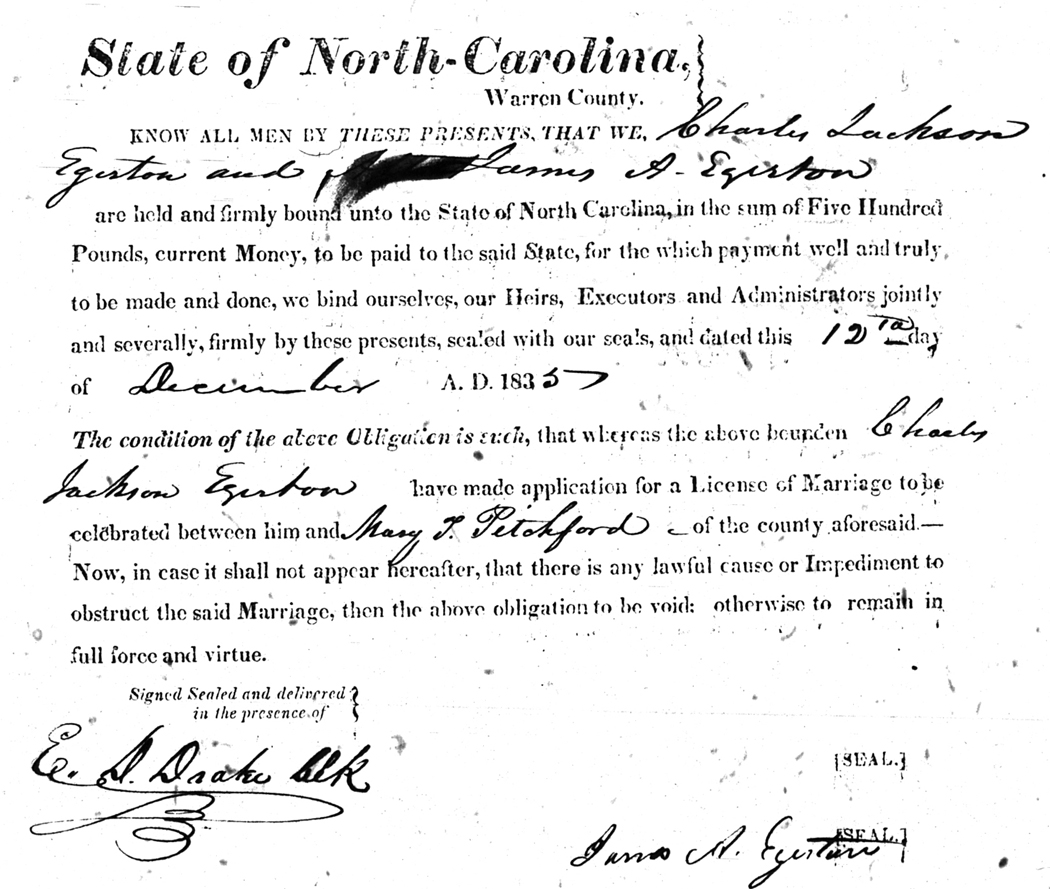 State of North-Carolina,
Warren County.
KNOW ALL MEN BY THESE PRESENTS, THAT WE, Charles Jackson
Egerton and James A. Egerton
are held and firmly bound unto the State of North Carolina, in the sum of Five Hundred
Pounds, current Money, to be paid to the said State, for the which payment well and truly
to be made and done, we bind ourselves, our Heirs, Executors and Administrators jointly
and severally, firmly by these presents, sealed with our seals, and dated this 12th day
of December A. D. 1835
The condition of the above Obligation is such, that whereas the above bounden Charles
Jackson Egerton have made application for a License of Marriage to be
celebrated between him and Mary T. Pitchford of the county aforesaid.—
Now, in case it shall not appear hereafter, that there is any lawful cause or Impediment to
obstruct the said Marriage, then the above obligation to be void: otherwise to remain in
full force and virtue.
Signed Sealed and delivered
in the presence of
E. D. Drake Clk
[SEAL.]
James A. Egerton [SEAL.]